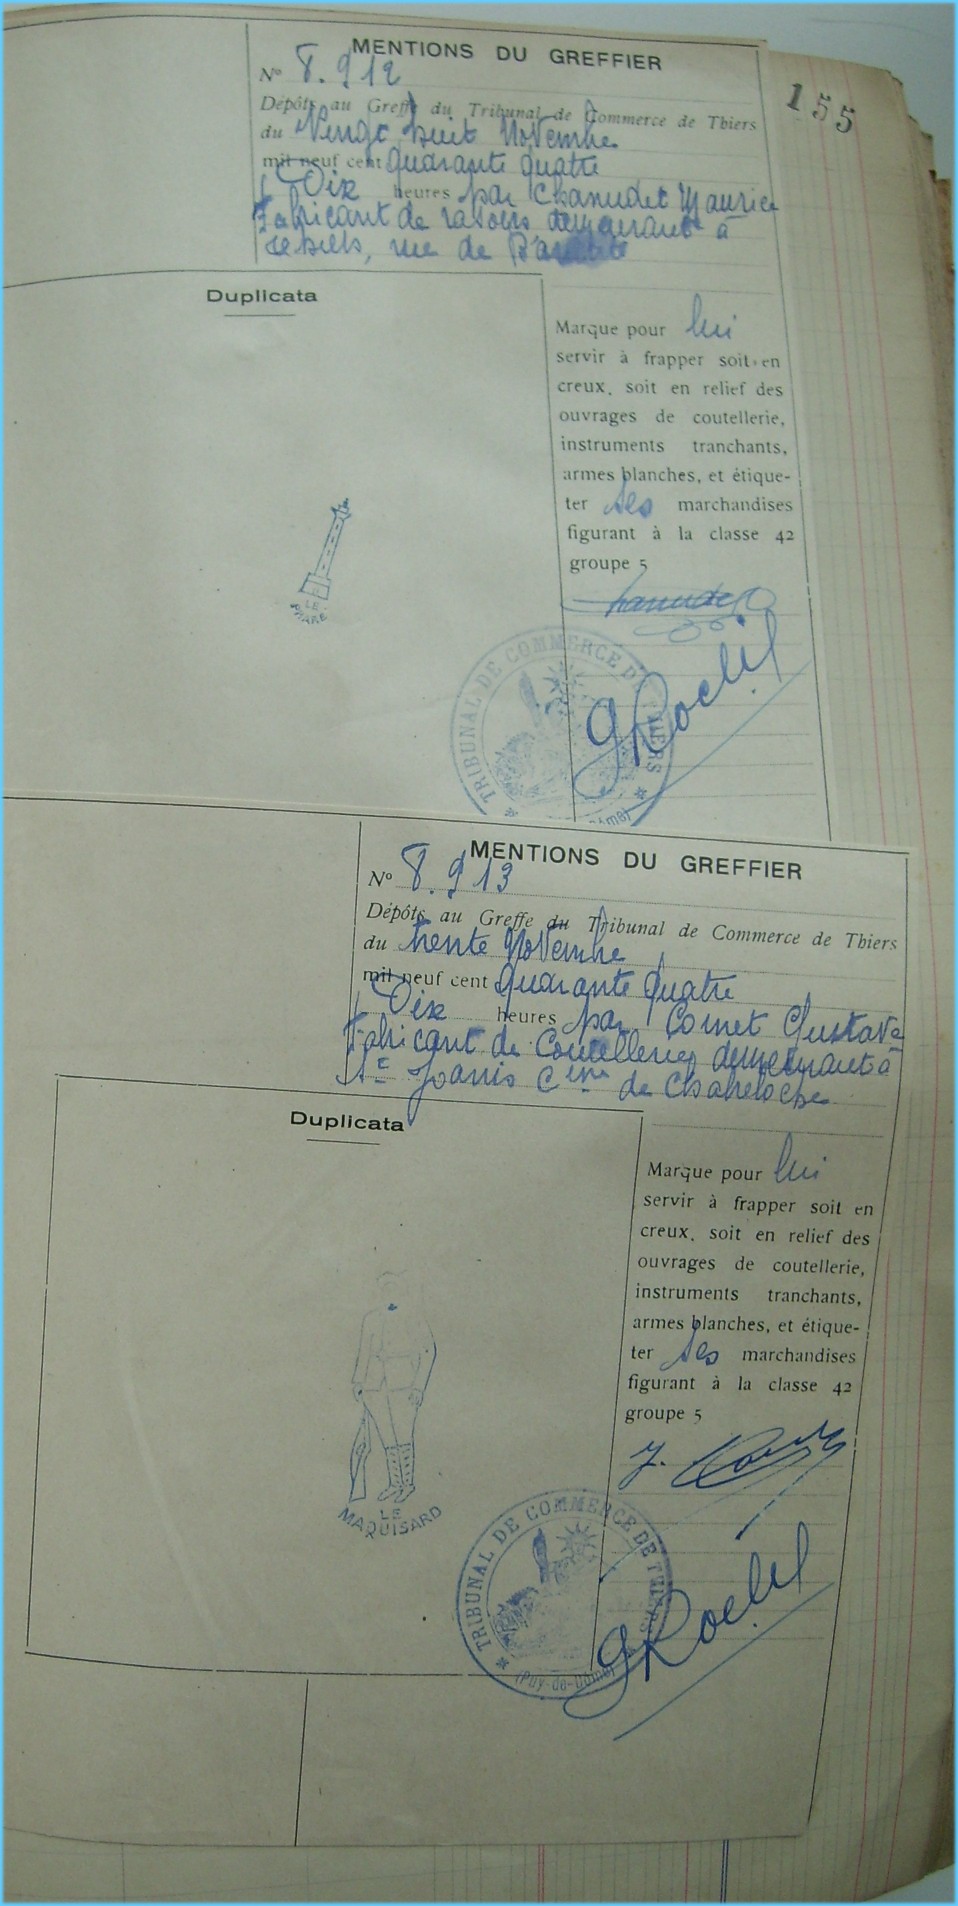 155
MENTIONS DU GREFFIER
N° 8.912
Dépôts au Greffe du Tribunal de Commerce de Thiers
du Vingt huit Novembre
mil neuf cent quarante quatre
Dix heures par Chanudet Maurice
Fabricant de rasoirs demeurant à
rue de
Duplicata
Marque pour lui
servir à frapper soit en
creux, soit en relief des
ouvrages de coutellerie,
instruments tranchants,
armes blanches, et étique-
ter ses marchandises
figurant à la classe 42
groupe 5
LE
PHARE
Chanudet
TRIBUNAL DE COMMERCE DE THIERS
MENTIONS DU GREFFIER
N° 8.913
Dépôts au Greffe du Tribunal de Commerce de Thiers
du trente Novembre
mil neuf cent quarante quatre
Dix heures par Cornet Gustave
Fabricant de Coutelleries demeurant à
Joanis Cne de Chabreloche
Duplicata
Marque pour lui
servir à frapper soit en
creux, soit en relief des
ouvrages de coutellerie,
instruments tranchants,
armes blanches, et étique-
ter ses marchandises
figurant à la classe 42
groupe 5
LE
MAQUISARD
TRIBUNAL DE COMMERCE DE THIERS
(Puy-de-Dôme)